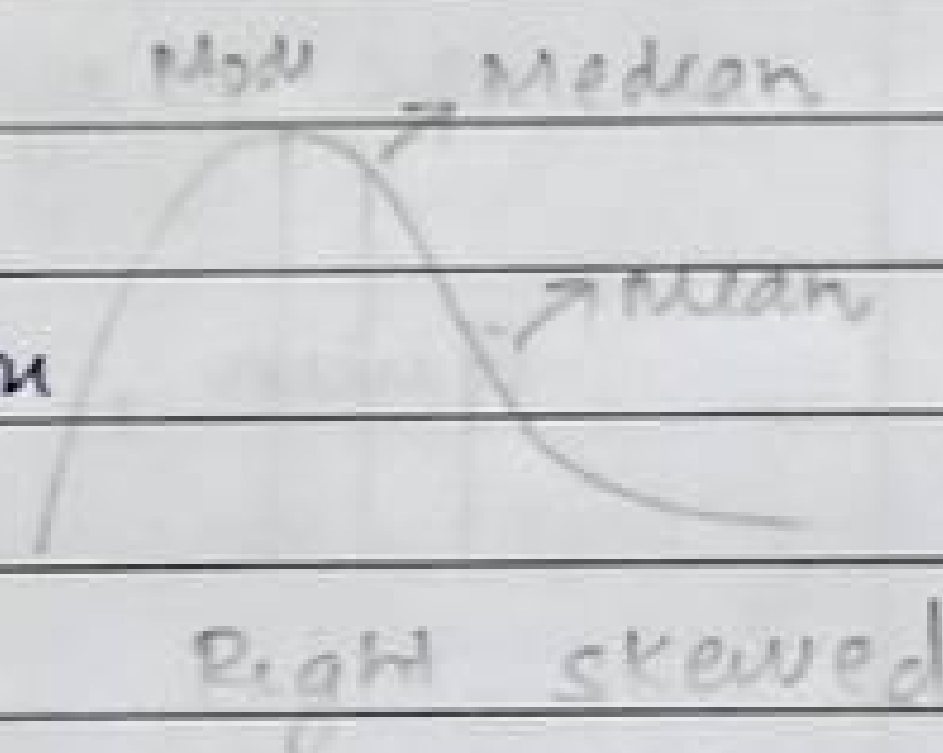 Mode Median
Mean
Right skewed